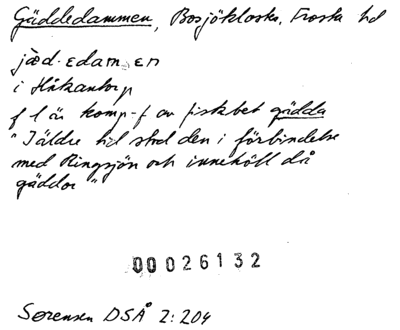 Gäddedammen, Bosjökloster, Frosta hd
jæd·ɛdam·ɛn
i Håkantorp
f l är komp-f av fiskbet gädda
"I äldre tid stod den i förbindelse
med Ringsjön och innehöll då
gäddor"
00026132
Sørensen DSÅ 2:204